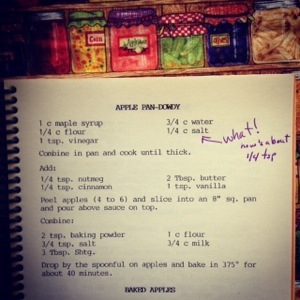 APPLE PAN-DOWDY
1 c maple syrup 3/4 c water
1/4 c flour 1/4 c salt
1 tsp. vinegar
what!
how's about
1/4 tsp
Combine in pan and cook until thick.
Add:
1/4 tsp. nutmeg 2 Tbsp. butter
1/4 tsp. cinnamon 1 tsp. vanilla
Peel apples (4 to 6) and slice into an 8" sq. pan
and pour above sauce on top.
Combine:
2 tsp. baking powder 1 c flour
3/4 tsp. salt 3/4 c milk
3 Tbsp. Shtg.
Drop by the spoonful on apples and bake in 375° for
about 40 minutes.
BAKED APPLES